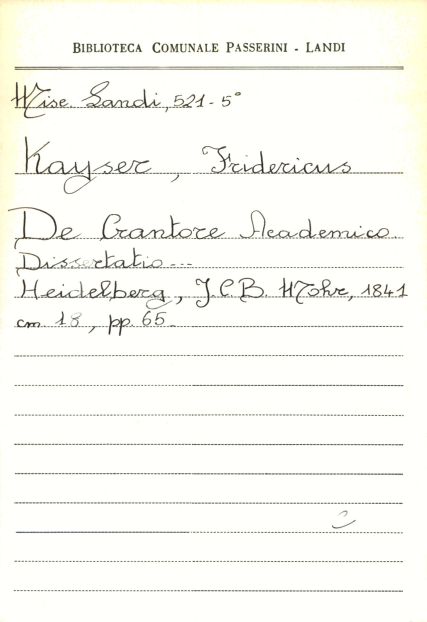 BIBLIOTECA COMUNALE PASSERINI - LANDI
Misc. Landi, 521 - 5°
Kayser, Fridericus
De Crantore Academico.
Dissertatio ...
Heidelberg, J.C.B. Mohr, 1841
cm 18, pp. 65.